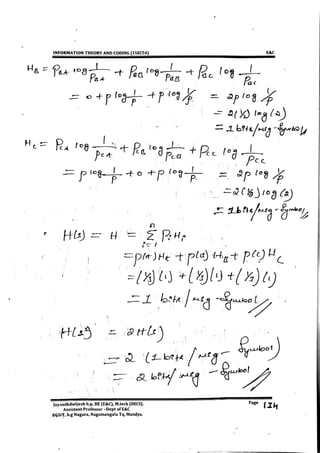 INFORMATION THEORY AND CODING (15EC54) E&C
H_B = P_BA log 1/P_BA + P_BB log 1/P_BB + P_BC log 1/P_BC
= 0 + p log 1/p + p log 1/p = 2p log 1/p
= 2(½) log (2)
= 1 bits/msg-symbol//
H_C = P_CA log 1/P_CA + P_CB log 1/P_CB + P_CC log 1/P_CC
= p log 1/p + 0 + p log 1/p = 2p log 1/p
= 2(½) log (2)
= 1 bits/msg-symbol//
H(s) = H = Σ(i=1 to n) P_i H_i
= p(A) H_A + p(B) H_B + p(C) H_C
= (⅓)(1) + (⅓)(1) + (⅓)(1)
= 1 bits/msg-symbol//
H(s²) = 2 H(s)
= 2 (1 bits/msg-symbol)
= 2 bits/msg-symbol//
h.p, BE (E&C), M.tech (DECS). Page 124
Assistant Professor -Dept of E&C
BGSIT, b.g Nagara, Nagamangala Tq, Mandya.